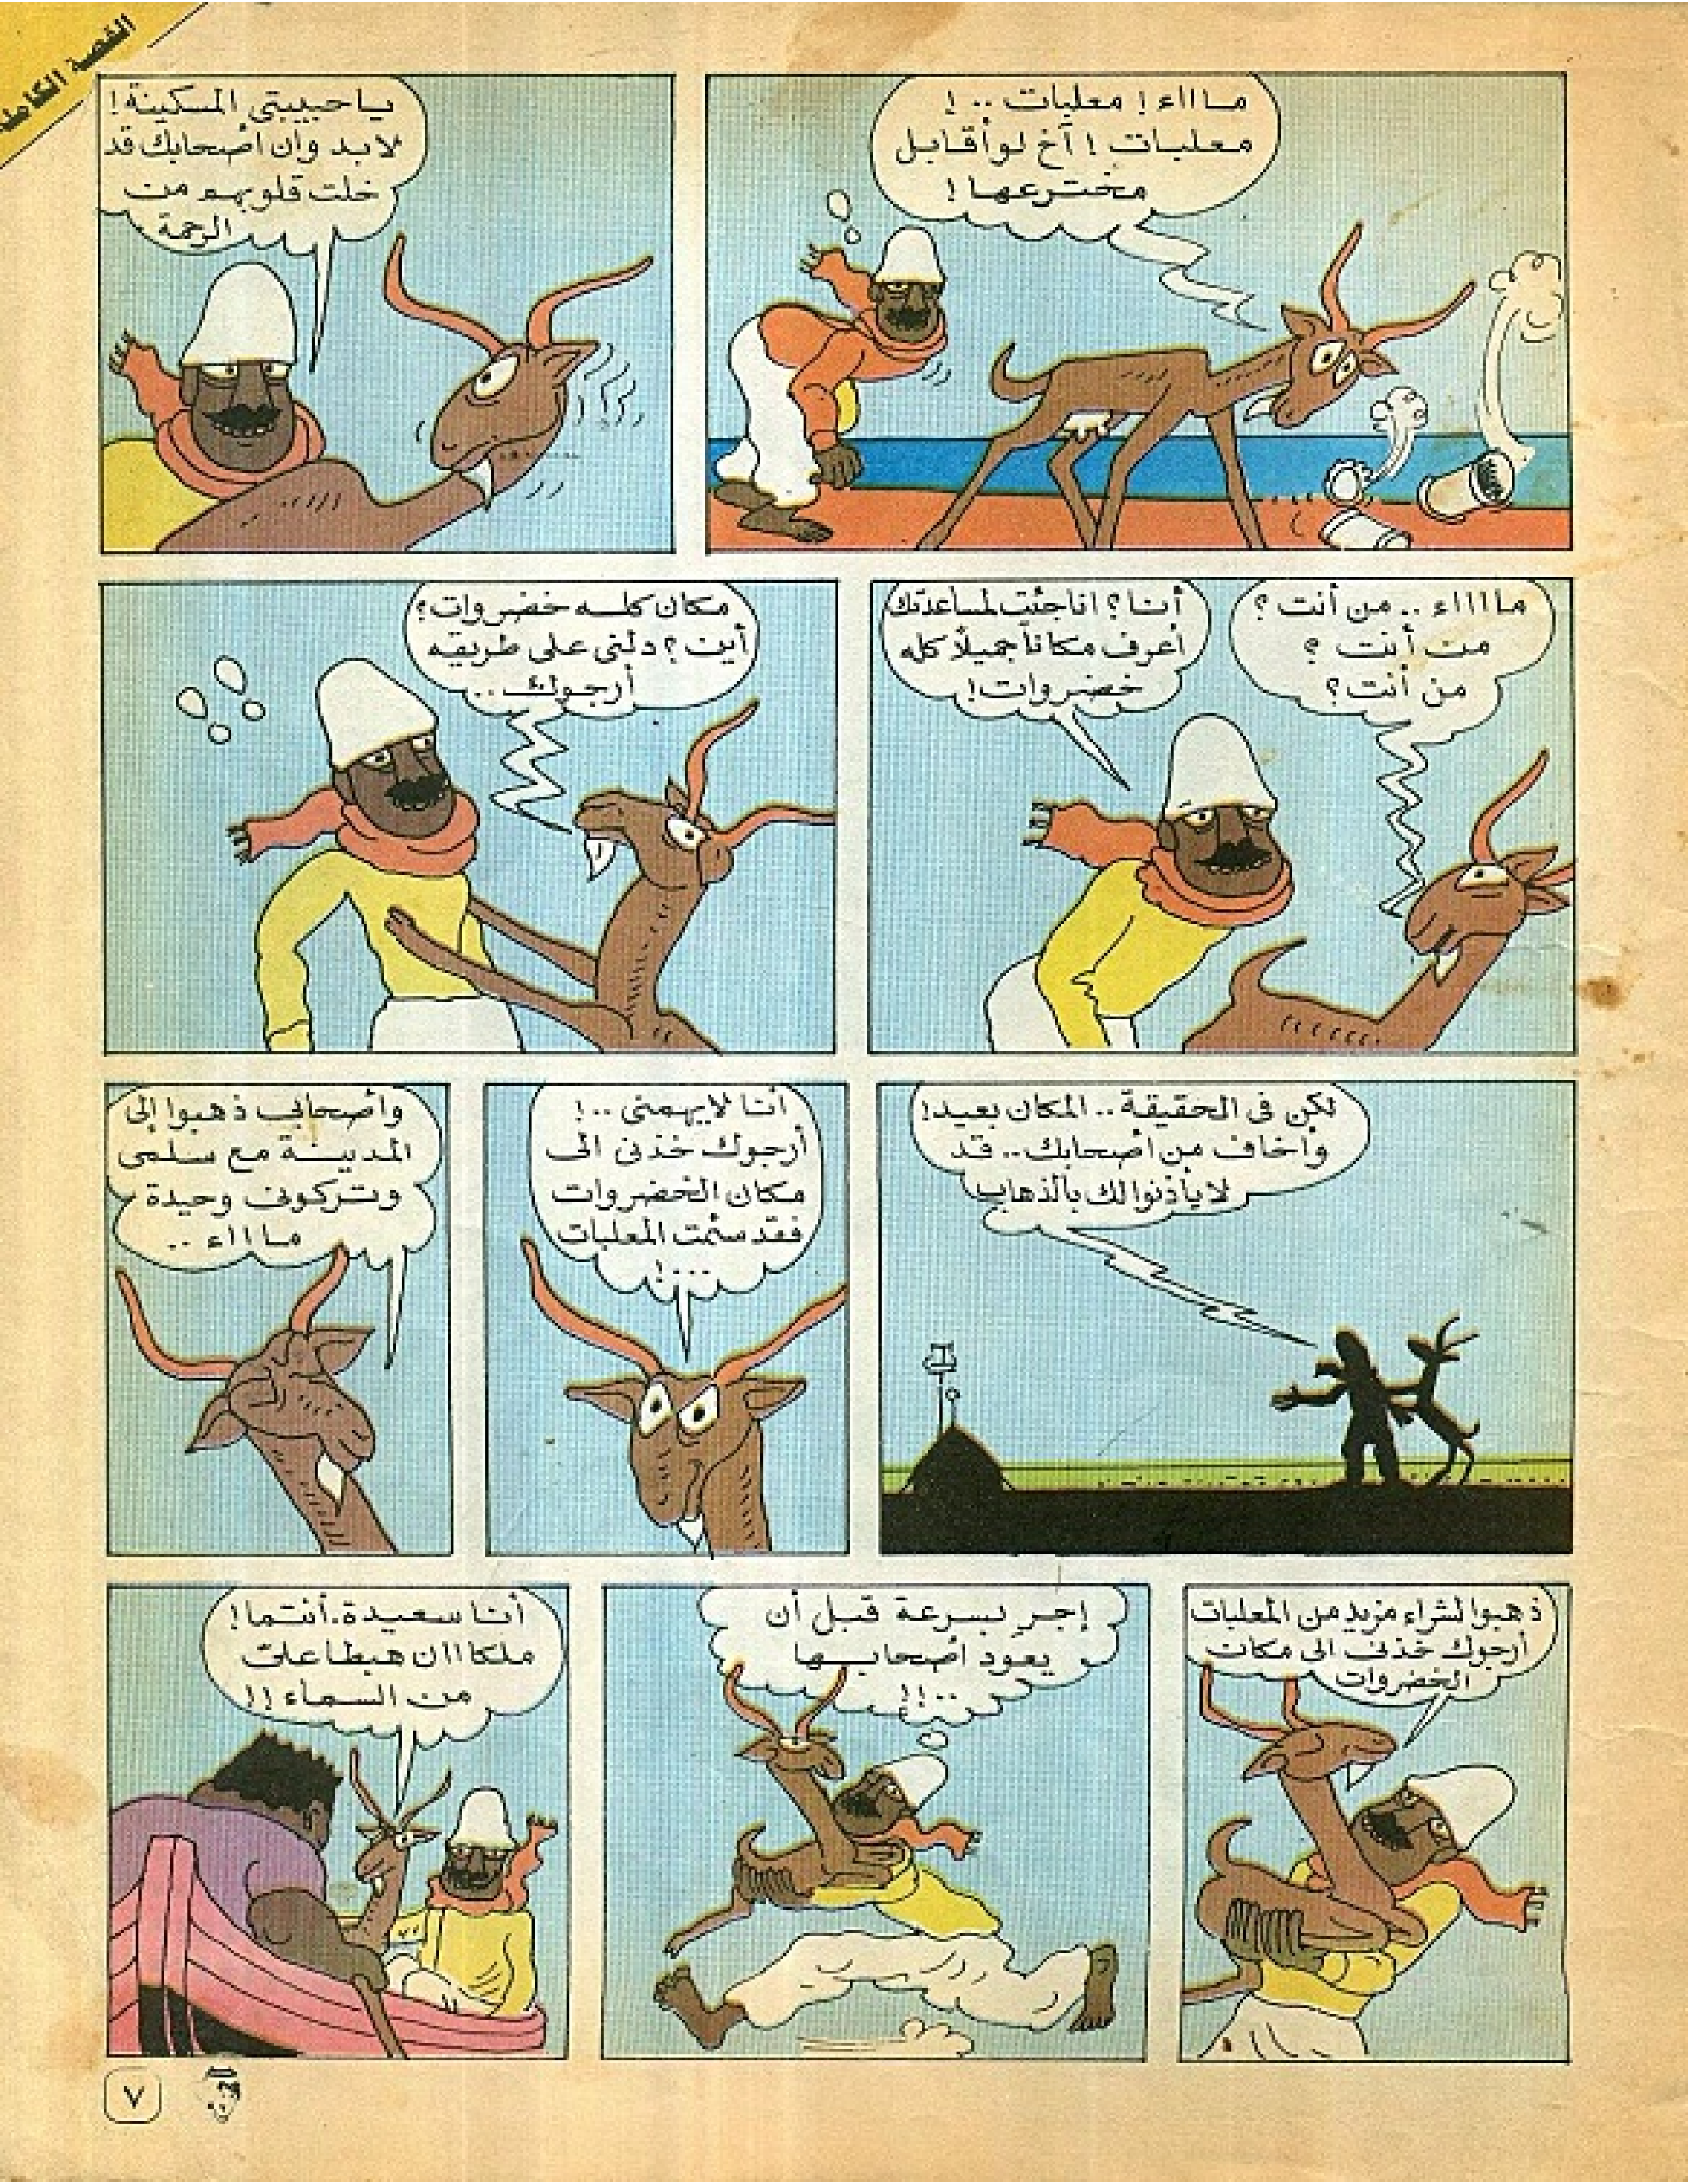 القصة الكاملة
مـا ا اء ! معلبات .. !
معلبات ! آخ لو أقابل
مخترعها !
يا حبيبتى المسكينة !
لابد وان أصحابك قد
خلت قلوبهم من
الرحمة
ما ا ا اء .. من أنت ؟
من أنت ؟
من أنت ؟
أنا ؟ انا جئت لمساعدتك
أعرف مكاناً جميلاً كله
خضروات !
مكان كله خضروات ؟
أين ؟ دلنى على طريقه
أرجوك ..
لكن فى الحقيقة .. المكان بعيد !
وأخاف من أصحابك .. قد
لا يأذنوا لك بالذهاب
أنا لا يهمنى .. !
أرجوك خذنى الى
مكان الخضروات
فقد سئمت المعلبات
... !
وأصحابى ذهبوا إلى
المدينة مع سلمى
وتركونى وحيدة
ما ا اء ..
ذهبوا لشراء مزيد من المعلبات
أرجوك خذنى الى مكان
الخضروات
إجر بسرعة قبل أن
يعود أصحابها
.. !!
أنا سعيدة . أنتما !
ملكا ا ان هبطا على
من السماء !!
٧